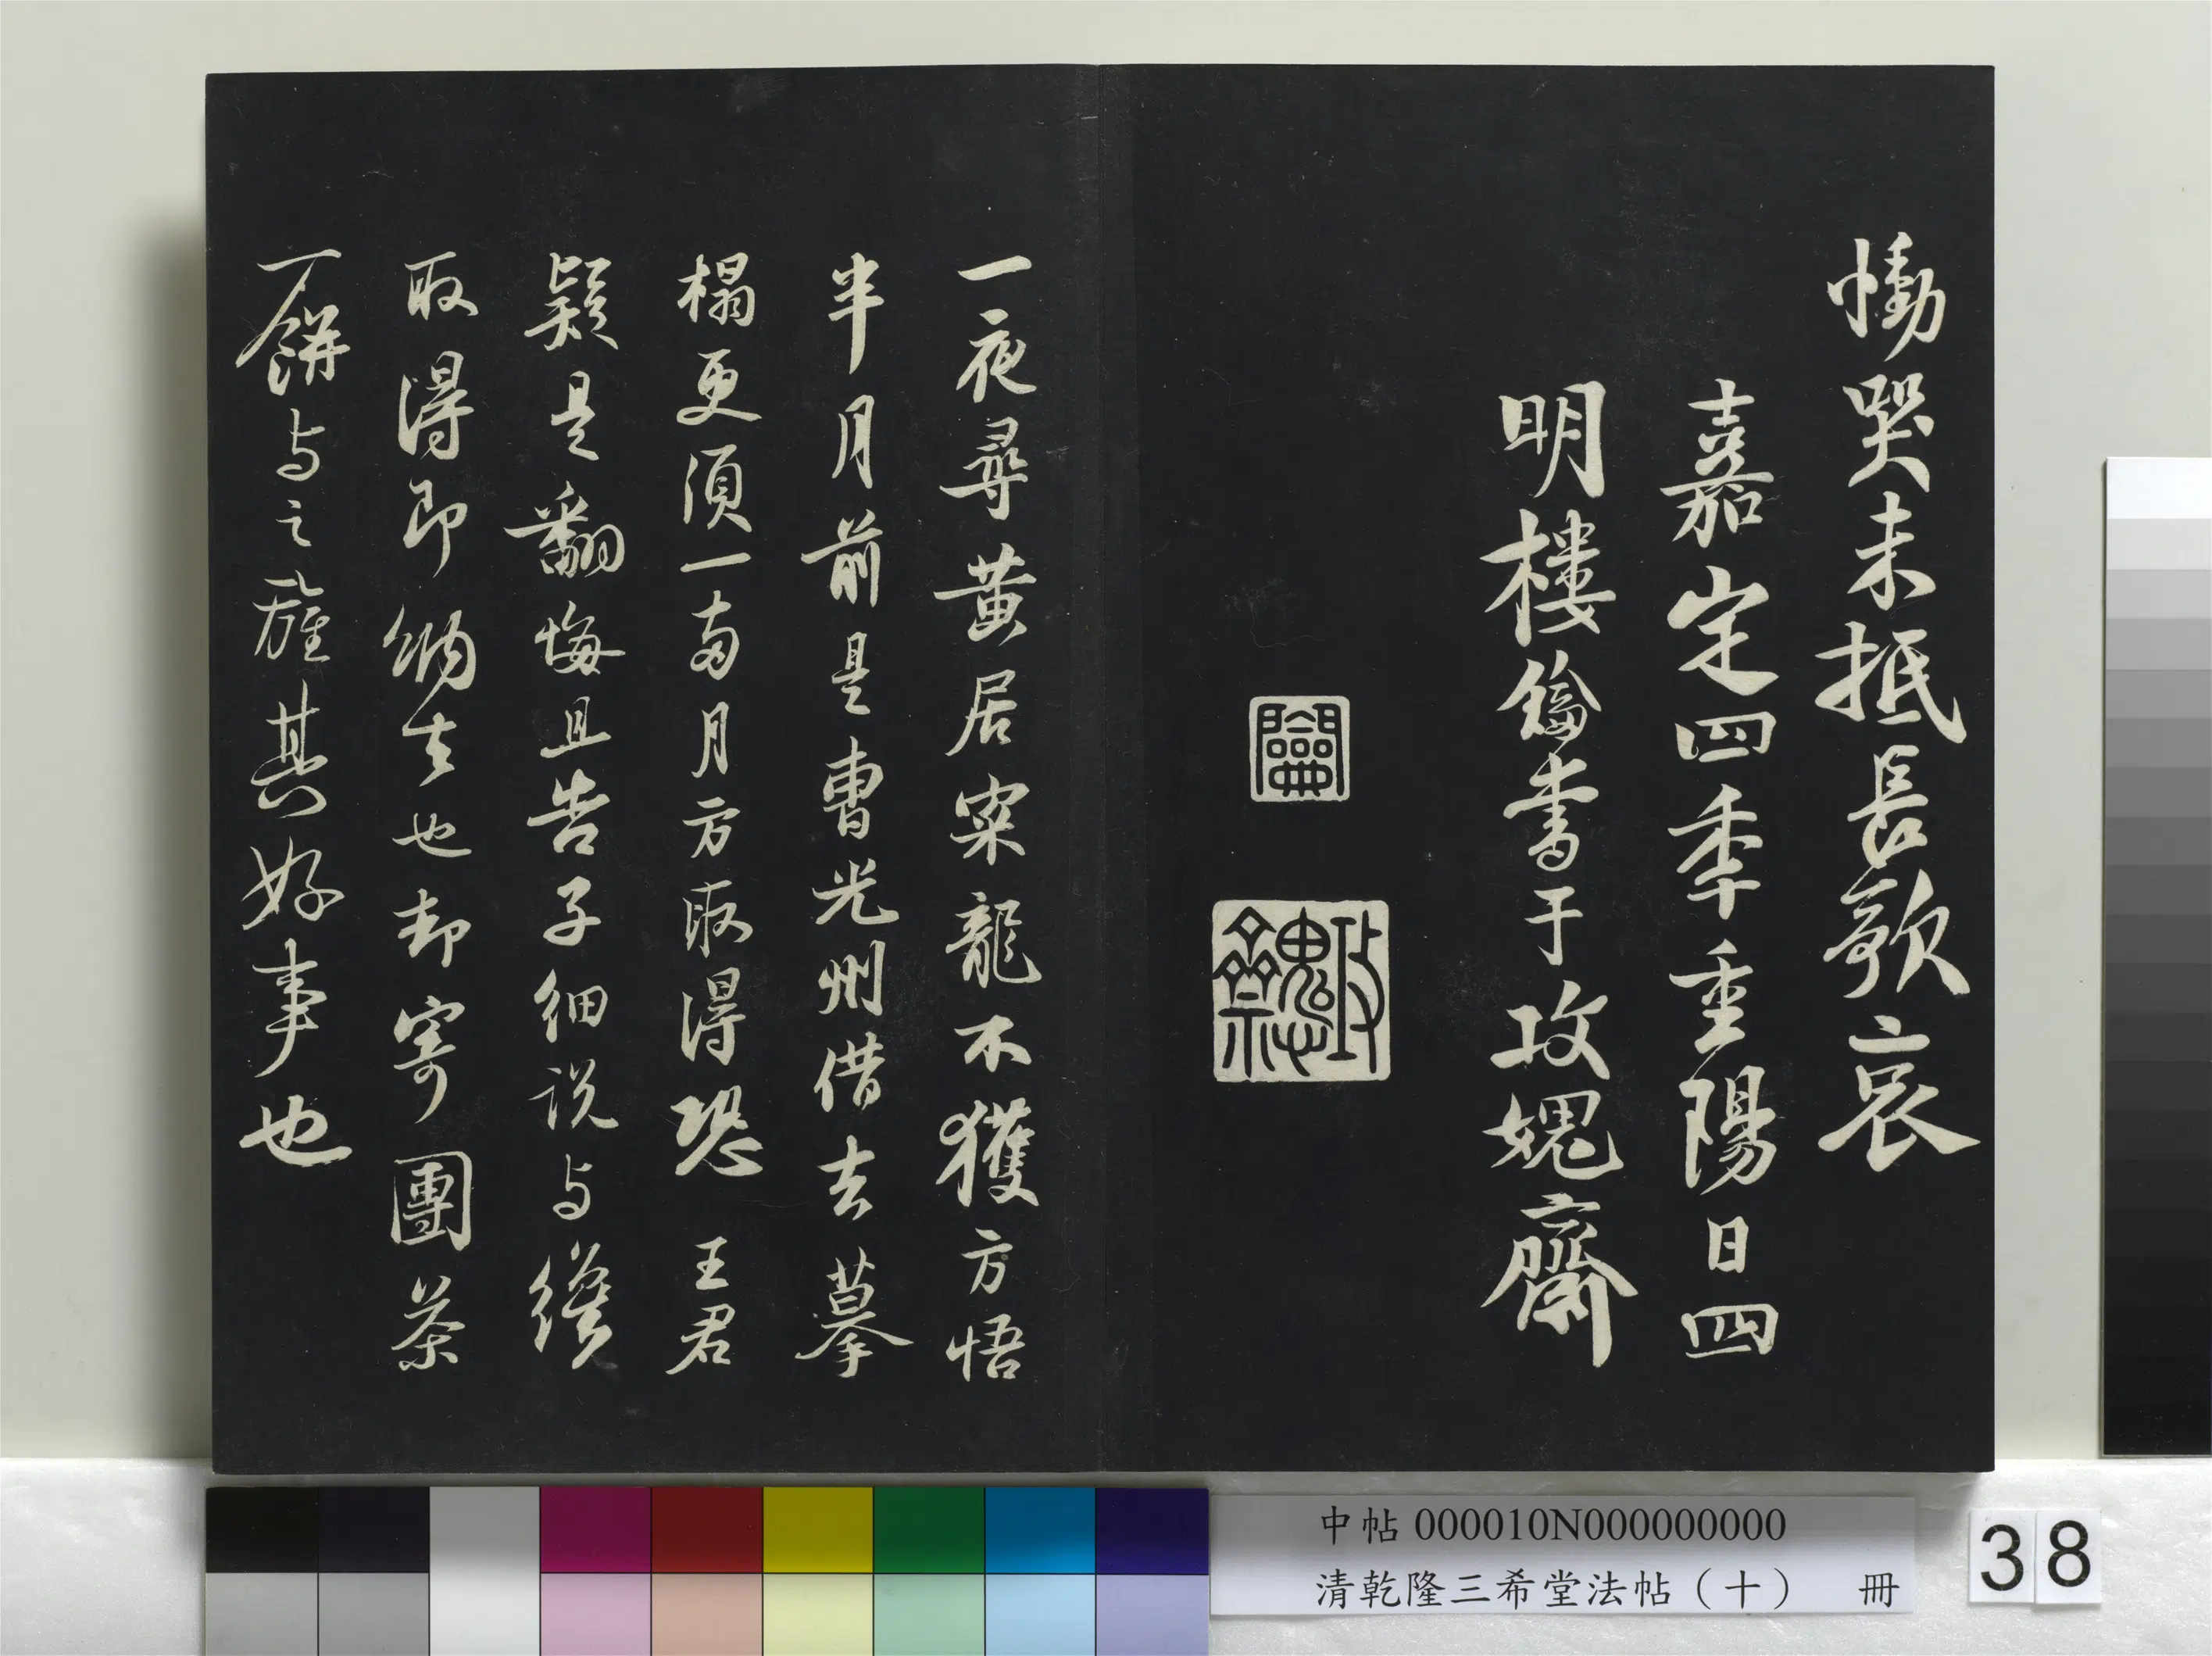 慟哭未抵長歌哀
嘉定四季重陽日四
明樓鑰書于攻媿齋
攻媿齋
一夜尋黃居寀龍不獲方悟
半月前是曹光州借去摹
榻更須一兩月方取得恐王君
疑是翻悔且告子細說与纔
取得即納去也却寄團茶
一餅与之旌其好事也
中帖 000010N000000000
清乾隆三希堂法帖（十） 冊
38